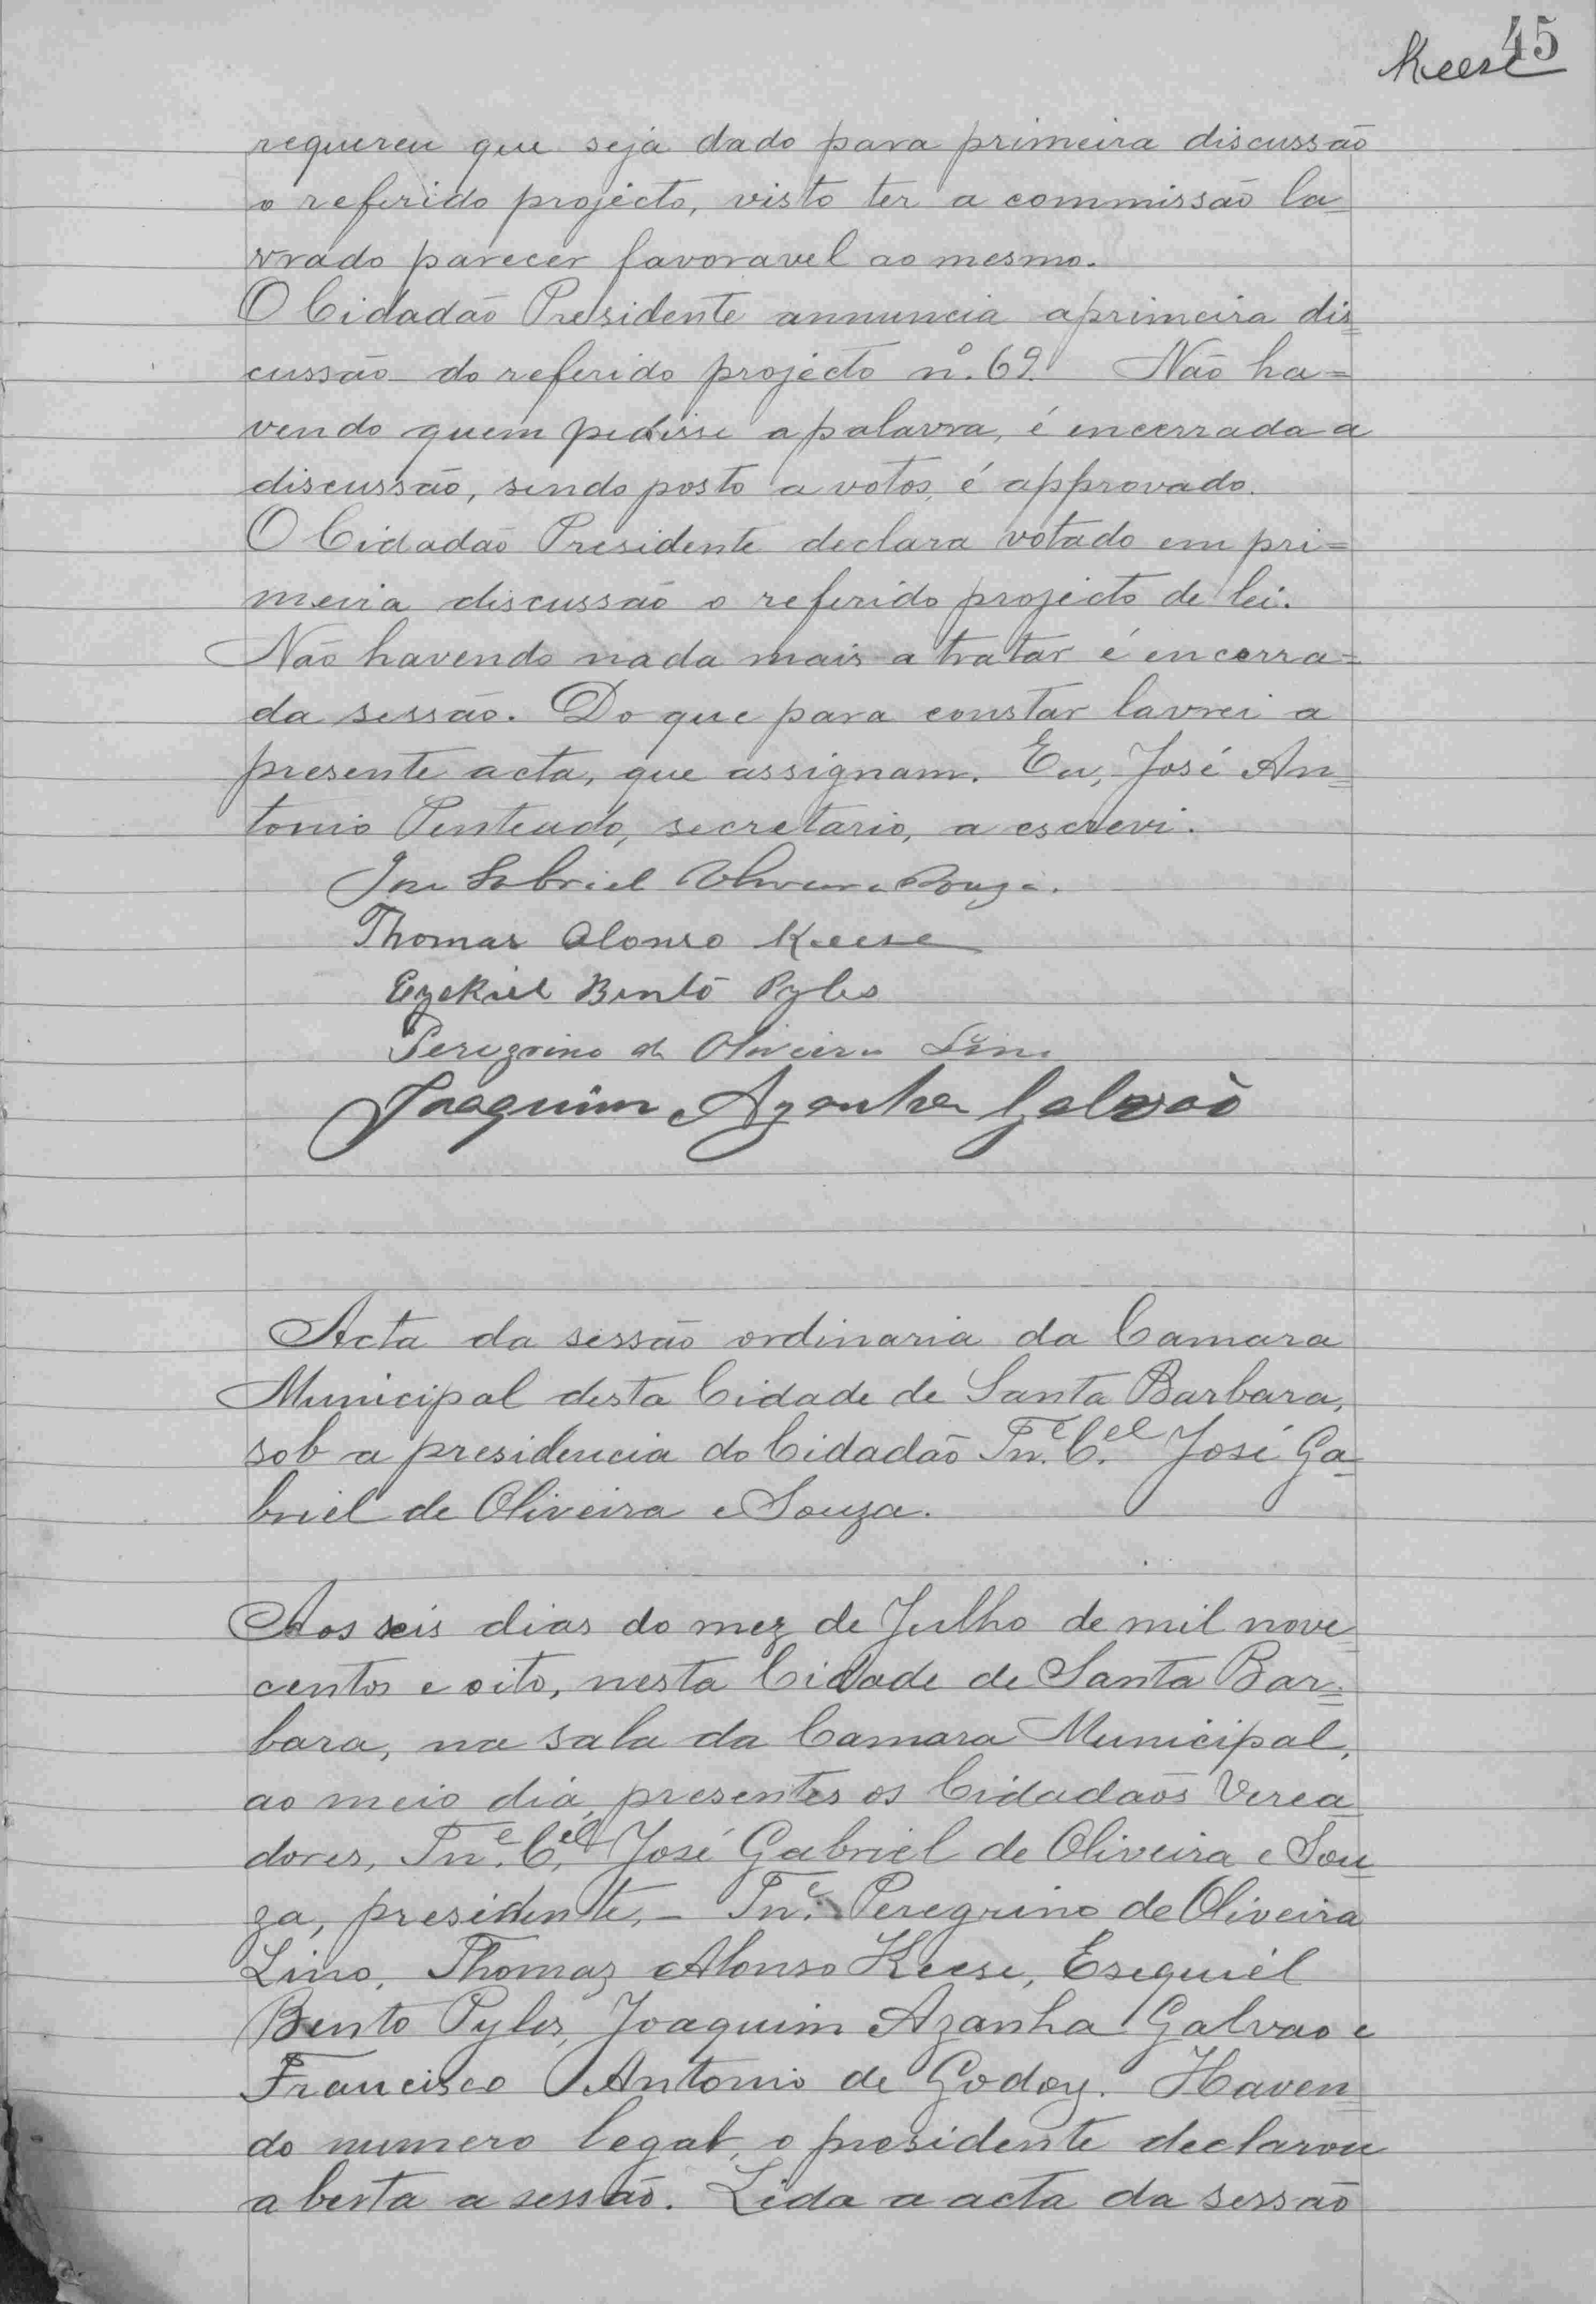 45
Keese
requereu que seja dado para primeira discussão
o referido projecto, visto ter a commissão la-
vrado parecer favoravel ao mesmo.
O Cidadão Presidente annuncia a primeira dis=
cussão do referido projecto nº. 69. Não ha=
vendo quem pedisse a palavra, é encerrada a
discussão, sendo posto a votos, é approvado.
O Cidadão Presidente declara votado em pri=
meira discussão o referido projecto de lei.
Não havendo nada mais a tratar é encerra=
da sessão. Do que para constar lavrei a
presente acta, que assignam. Eu, José An=
tonio Penteado, secretario, a escrevi.
José Gabriel Oliveira e Souza.
Thomas Alonso Keese
Ezekiel Bento Pyles
Peregrino de Oliveira Lino
Joaquim Azanha Galvão
Acta da sessão ordinaria da Camara
Municipal desta Cidade de Santa Barbara,
sob a presidencia do Cidadão Tn.e C.el José Ga-
briel de Oliveira e Souza.
Aos seis dias do mez de Julho de mil nove
centos e oito, nesta Cidade de Santa Bar=
bara, na sala da Camara Municipal,
ao meio dia, presentes os Cidadãos Verea
dores, Tn.e C.el José Gabriel de Oliveira e Sou
za, presidente, - Tn.e Peregrino de Oliveira
Lino, Thomaz Alonso Keese, Esequiél
Bento Pyles, Joaquim Azanha Galvao e
Francisco Antonio de Godoy. Haven=
do numero legal, o presidente declarou
aberta a sessão. Lida a acta da sessão